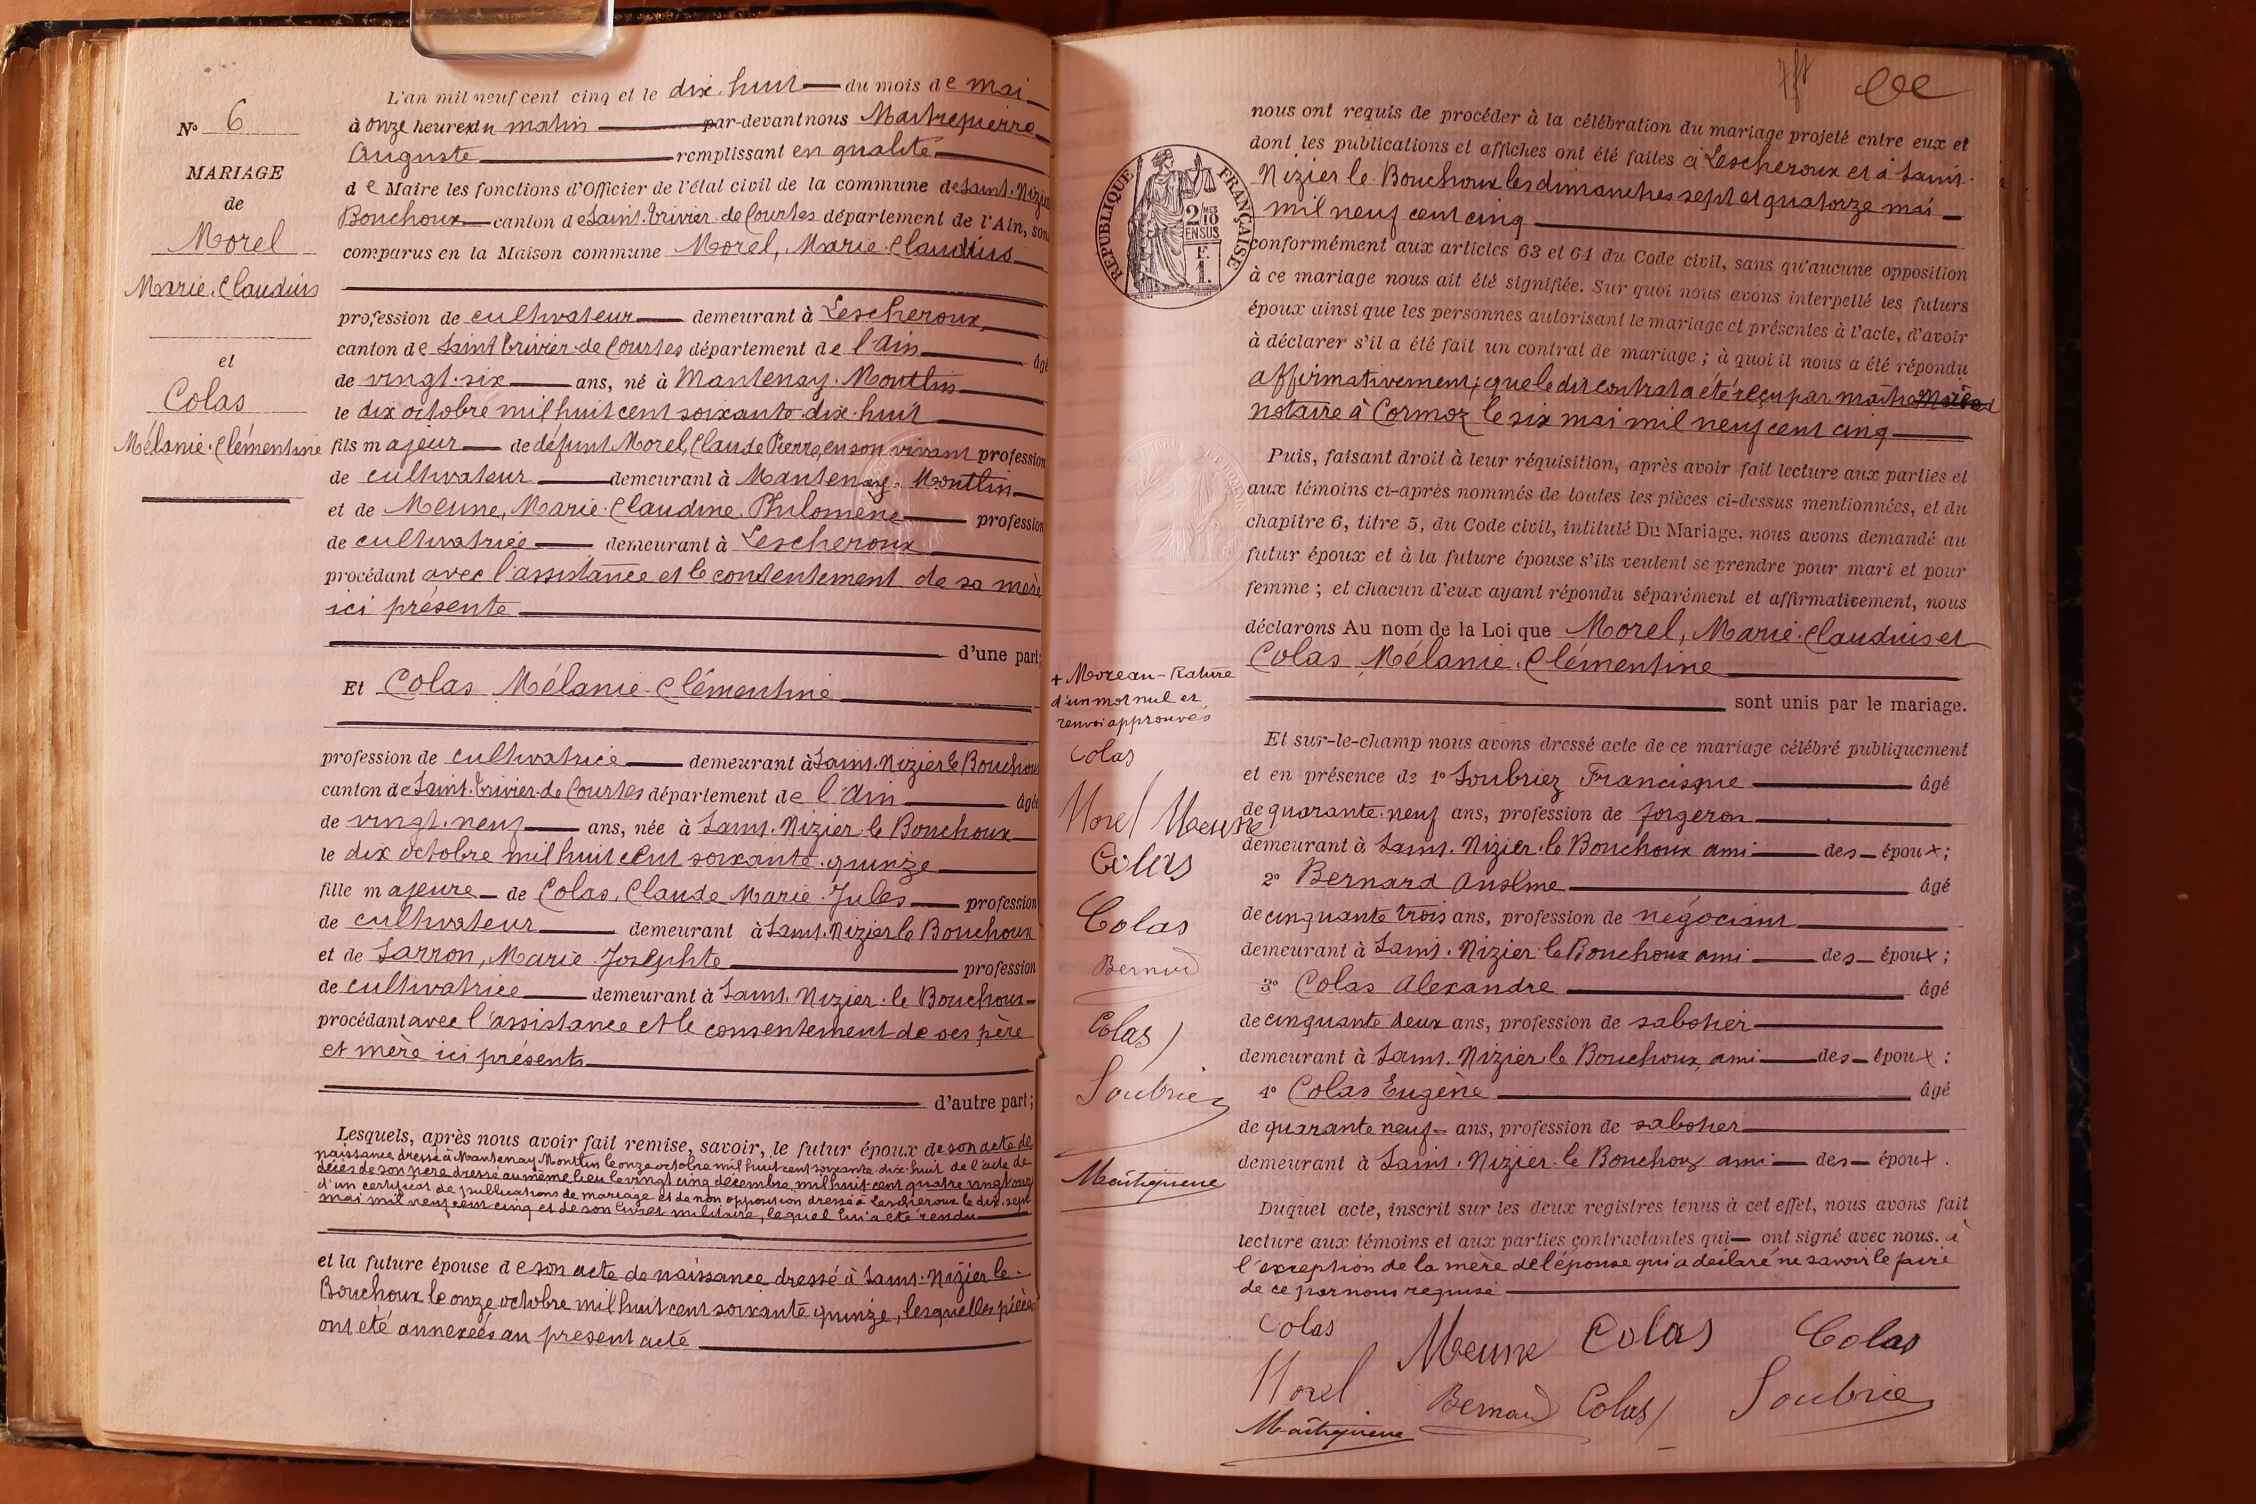 N° 6
MARIAGE
de
Morel
Marie-Claudius
et
Colas
Mélanie-Clémentine
L'an mil neuf cent cinq et le dix-huit du mois de mai
à onze heures du matin par-devant nous Maitrepierre
Auguste remplissant en qualité
de Maire les fonctions d'Officier de l'état civil de la commune de Saint-Nizier
Bouchoux canton de Saint-Trivier-de-Courtes département de l'Ain, sont
comparus en la Maison commune Morel, Marie-Claudius
profession de cultivateur demeurant à Lescheroux
canton de Saint Trivier-de-Courtes département de l'Ain âgé
de vingt-six ans, né à Mantenay-Montlin
le dix octobre mil huit cent soixante-dix-huit
fils majeur de défunt Morel, Claude Pierre, en son vivant profession
de cultivateur demeurant à Mantenay-Montlin
et de Meune, Marie-Claudine-Philomène profession
de cultivatrice demeurant à Lescheroux
procédant avec l'assistance et le consentement de sa mère
ici présente
d'une part;
Et Colas Mélanie-Clémentine
profession de cultivatrice demeurant à Saint-Nizier le Bouchoux
canton de Saint-Trivier-de-Courtes département de l'Ain âgée
de vingt-neuf ans, née à Saint-Nizier-le-Bouchoux
le dix octobre mil huit cent soixante-quinze
fille majeure de Colas, Claude Marie-Jules profession
de cultivateur demeurant à Saint-Nizier le Bouchoux
et de Sarron, Marie-Josephte profession
de cultivatrice demeurant à Saint-Nizier-le Bouchoux
procédant avec l'assistance et le consentement de ses père
et mère ici présents
d'autre part;
Lesquels, après nous avoir fait remise, savoir, le futur époux de son acte de
naissance dressé à Mantenay-Montlin le onze octobre mil huit cent soixante-dix-huit de l'acte de
décès de son père dressé au même lieu le vingt cinq décembre mil huit-cent quatre vingt onze
d'un certificat de publications de mariage et de non opposition dressé à Lescheroux le dix-sept
mai mil neuf cent cinq et de son livret militaire, lequel lui a été rendu
et la future épouse de son acte de naissance dressé à Saint-Nizier le-
Bouchoux le onze octobre mil huit cent soixante quinze, lesquelles pièces
ont été annexées au présent acte
RÉPUBLIQUE FRANÇAISE
2/10 EN SUS
F.
1.
nous ont requis de procéder à la célébration du mariage projeté entre eux et
dont les publications et affiches ont été faites à Lescheroux et à Saint-
Nizier le Bouchoux les dimanches sept et quatorze mai
mil neuf cent cinq
conformément aux articles 63 et 64 du Code civil, sans qu'aucune opposition
à ce mariage nous ait été signifiée. Sur quoi nous avons interpellé les futurs
époux ainsi que les personnes autorisant le mariage et présentes à l'acte, d'avoir
à déclarer s'il a été fait un contrat de mariage; à quoi il nous a été répondu
affirmativement, que le dit contrat a été reçu par maître
notaire à Cormoz le six mai mil neuf cent cinq
Puis, faisant droit à leur réquisition, après avoir fait lecture aux parties et
aux témoins ci-après nommés de toutes les pièces ci-dessus mentionnées, et du
chapitre 6, titre 5, du Code civil, intitulé Du Mariage, nous avons demandé au
futur époux et à la future épouse s'ils veulent se prendre pour mari et pour
femme; et chacun d'eux ayant répondu séparément et affirmativement, nous
déclarons Au nom de la Loi que Morel, Marie-Claudius et
Colas Mélanie-Clémentine
sont unis par le mariage.
+ Moreau-Rature
d'un mot nul et
renvoi approuvés
Colas
Morel Meune
Colas
Colas
Bernard
Colas
Soubriez
Maitrepierre
Et sur-le-champ nous avons dressé acte de ce mariage célébré publiquement
et en présence de 1° Soubriez Francisque âgé
de quarante-neuf ans, profession de forgeron
demeurant à Saint-Nizier-le Bouchoux ami des époux;
2° Bernard Anselme âgé
de cinquante trois ans, profession de négociant
demeurant à Saint-Nizier le Bouchoux ami des époux;
3° Colas Alexandre âgé
de cinquante deux ans, profession de sabotier
demeurant à Saint-Nizier le Bouchoux, ami des époux:
4° Colas Eugène âgé
de quarante neuf ans, profession de sabotier
demeurant à Saint-Nizier-le Bouchoux ami des époux.
Duquel acte, inscrit sur les deux registres tenus à cet effet, nous avons fait
lecture aux témoins et aux parties contractantes qui ont signé avec nous. à
l'exception de la mère de l'épouse qui a déclaré ne savoir le faire
de ce par nous requise
Colas Meune Colas Colas
Morel Bernard Colas Soubriez
Maitrepierre